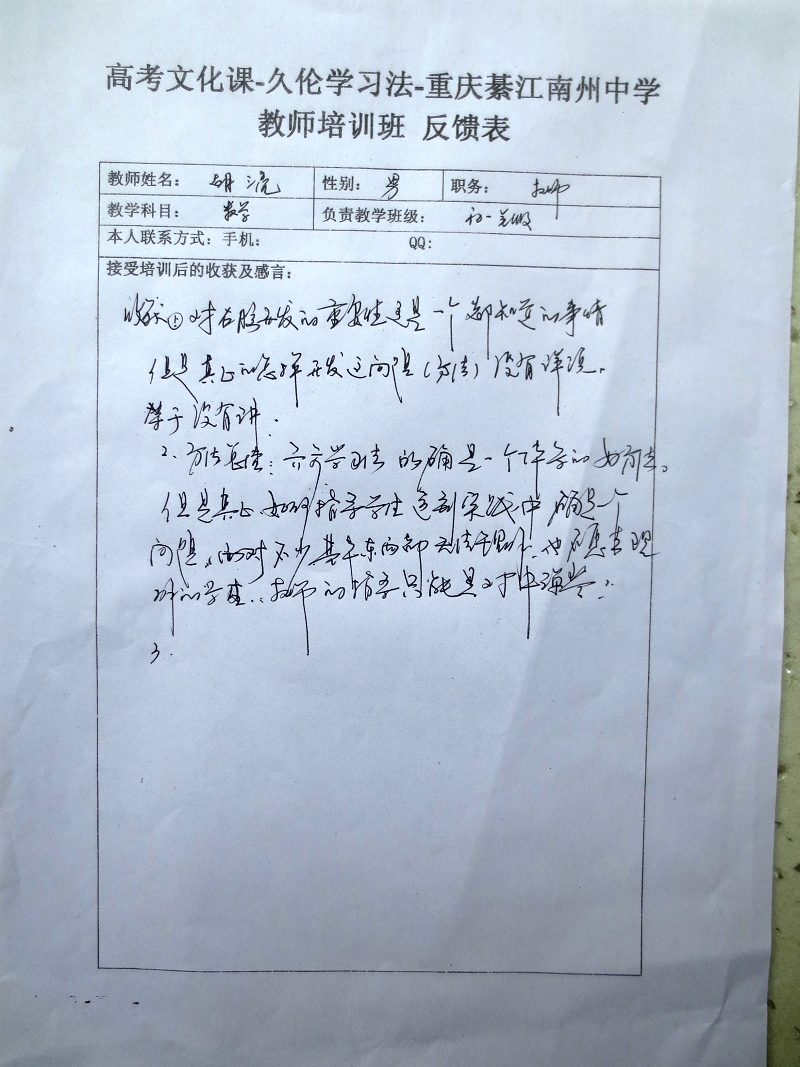 高考文化课-久伦学习法-重庆綦江南州中学
教师培训班 反馈表
教师姓名： 胡 性别： 男 职务： 教师
教学科目： 数学 负责教学班级： 初一
本人联系方式：手机： QQ：
接受培训后的收获及感言：
收获 对右脑开发的重要性是一个都知道的事情
但是真正的怎样开发这问题（方法）没有详谈。
等于没有讲.
2. 方法 ： 学习法 的确是一个 的好方法。
但是真正如何指导学生运到实践中确是一个
问题，面对不少基本东西都无法 ，也不愿去
的学生，教师的指导只能是对牛弹琴。
3.